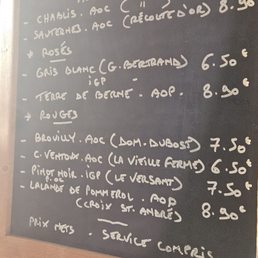 - CHABLIS. AOC ( " ) 8.90
- SAUTERNES. AOC (RÉCOLTE D'OR)
* ROSÉS
- GRIS BLANC (G. BERTRAND) 6.50€
IGP
- TERRE DE BERNE. AOP. 8.90€
* ROUGES
- BROUILLY. AOC (DOM. DUBOST) 7.50€
- C. VENTOUX. AOC (LA VIEILLE FERME) 6.50€
- PINOT NOIR. IGP (LE VERSANT) 7.50€
- LALANDE DE POMMEROL. AOP
(CROIX ST. ANDRÉ) 8.90€
PRIX NETS. SERVICE COMPRIS